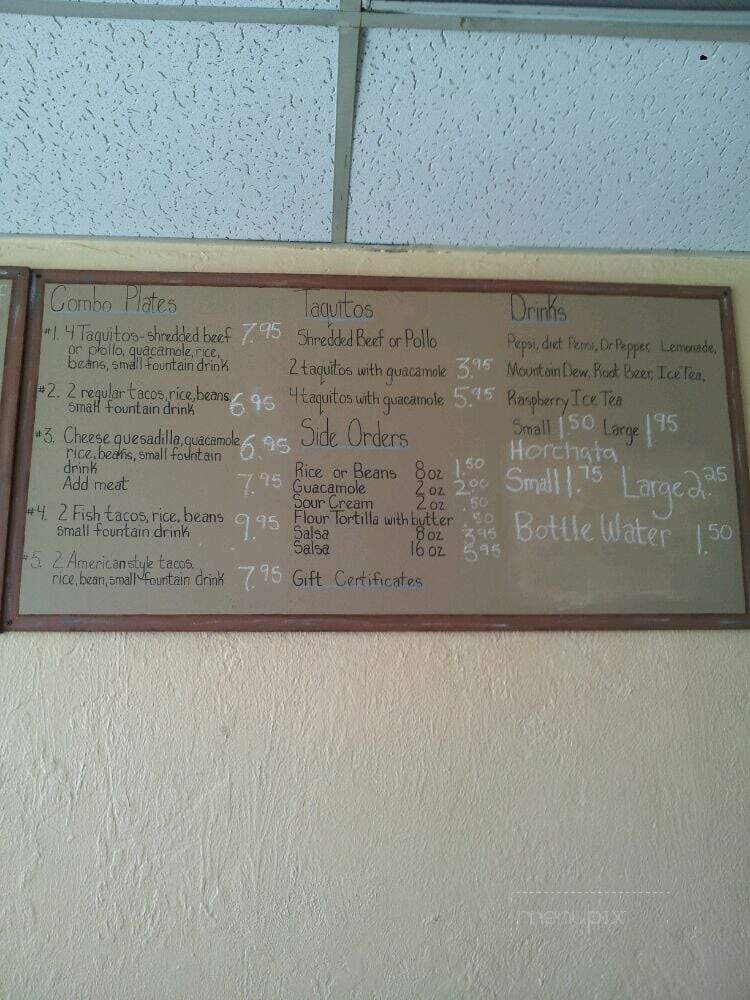 Combo Plates
#1. 4 Taquitos-shredded beef 7.95
or pollo, guacamole, rice,
beans, small fountain drink
#2. 2 regular tacos, rice, beans,
small fountain drink 6.95
#3. Cheese quesadilla, guacamole
rice, beans, small fountain 6.95
drink
Add meat 7.95
#4. 2 Fish tacos, rice, beans
small fountain drink 9.95
#5. 2 American style tacos,
rice, bean, small fountain drink 7.95
Taquitos
Shredded Beef or Pollo
2 taquitos with guacamole 3.95
4 taquitos with guacamole 5.95
Side Orders
Rice or Beans 8 oz 1.50
Guacamole 2 oz 2.00
Sour Cream 2 oz .50
Flour Tortilla with butter .50
Salsa 8 oz 3.95
Salsa 16 oz 5.95
Gift Certificates
Drinks
Pepsi, diet Pepsi, Dr Pepper, Lemonade,
Mountain Dew, Root Beer, Ice Tea,
Raspberry Ice Tea
Small 1.50 Large 1.95
Horchata
Small 1.75 Large 2.25
Bottle Water 1.50
menupix